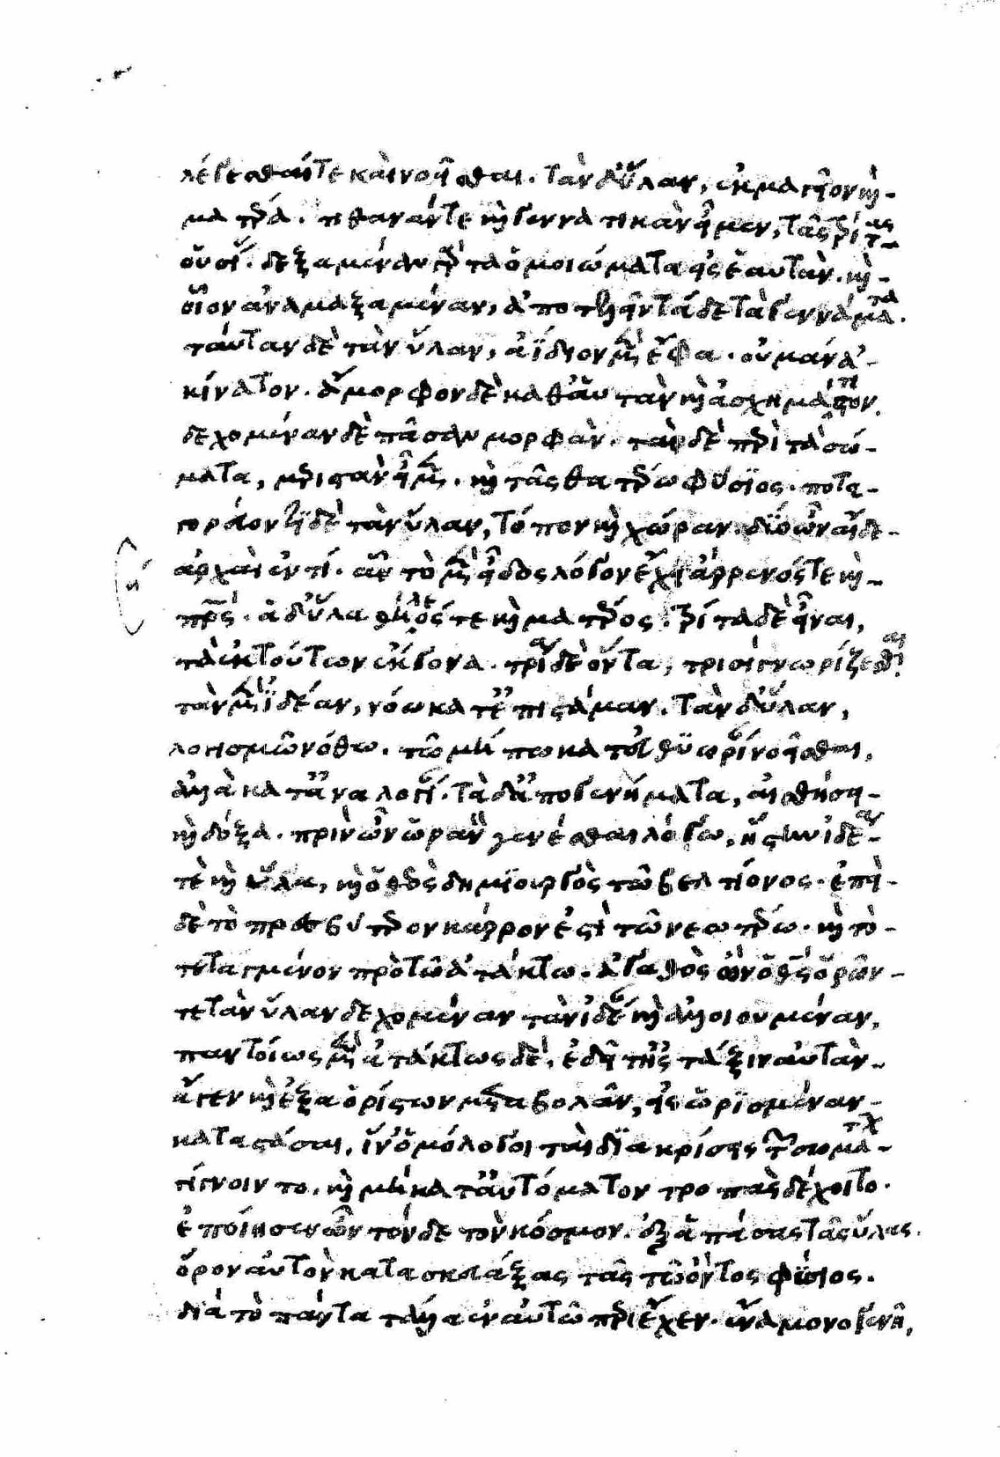 λέγεσθαί τε καὶ νοῆσθαι. τὰν δ' ὕλαν, ἐκμαγῆον καὶ
ματέρα. τιθάναν τε καὶ γεννατικὰν ἦμεν, τᾶς τρίτας
οὐσί. δεξαμέναν γὰρ τὰ ὁμοιώματα ἐς ἑαυτὰν. καὶ
οἷον ἀναμαξαμέναν, ἀποτελῆν τάδε τὰ γεννάματα.
ταύταν δὲ τὰν ὕλαν, ἀΐδιον μὲν ἔφα. οὐ μὰν ἀ-
κίνατον. ἄμορφον δὲ καθ' αὑτὰν καὶ ἀσχημάτιστον.
δεχομέναν δὲ πᾶσαν μορφάν. τὰν δὲ περὶ τὰ σώ-
ματα, μεριστὰν ἦμεν. καὶ τᾶς θατέρω φύσιος. ποτα-
γορεύοντι δὲ τὰν ὕλαν, τόπον καὶ χώραν. δύο ὦν αἵδε
ἀρχαὶ ἐντί. ἇν τὸ μὲν εἶδος λόγον ἔχει ἄρρενός τε καὶ
πρς. ἁ δ' ὕλα θήλεός τε καὶ ματέρος. τρίτα δὲ εἶναι,
τὰ ἐκ τούτων ἔκγονα. τρία δὲ ὄντα, τρισὶ γνωρίζεσθαι.
τὰν μὲν ἰδέαν, νόω κατ' ἐπιστάμαν. τὰν δ' ὕλαν,
λογισμῶ νόθω. τῶ μήπω κατ' εὐθυωρίαν νοῆσθαι,
ἀλλὰ κατ' ἀναλογί. τὰ δ' ἀπογεννήματα, αἰσθήσει
καὶ δόξα. πρὶν ὦν ὠρανὸν γενέσθαι λόγω, ἤστην ἰδέα
τε καὶ ὕλα, καὶ ὁ θεὸς δημιουργὸς τῶ βελτίονος. ἐπεὶ
δὲ τὸ πρεσβύτερον κάρρον ἐστὶ τῶ νεωτέρω. καὶ τὸ
τεταγμένον πρὸ τῶ ἀτάκτω. ἀγαθὸς ὢν ὁ θεὸς ὁρῶν
τε τὰν ὕλαν δεχομέναν τὰν ἰδέαν καὶ ἀλλοιουμέναν,
παντοίως μὲν ἀτάκτως δέ, ἐδήλετ' ἐς τάξιν αὐτὰν
ἄγεν καὶ ἐξ ἀορίστων μεταβολᾶν, ἐς ὡρισμέναν
καταστᾶσαι, ἵν' ὁμόλογοι ταὶ διακρίσεις τῶν σωμάτων
γίγνοιντο. καὶ μὴ κατ' αὐτόματον τροπὰς δέχοιτο.
ἐποίησεν ὦν τόνδε τὸν κόσμον. ἐξ ἁπάσας τᾶς ὕλας.
ὅρον αὐτὸν κατασκευάξας τᾶς τῶ ὄντος φύσιος.
διὰ τὸ πάντα τἆλλα ἐν αὐτῶ περιέχεν. ἕνα μονογενῆ,
η